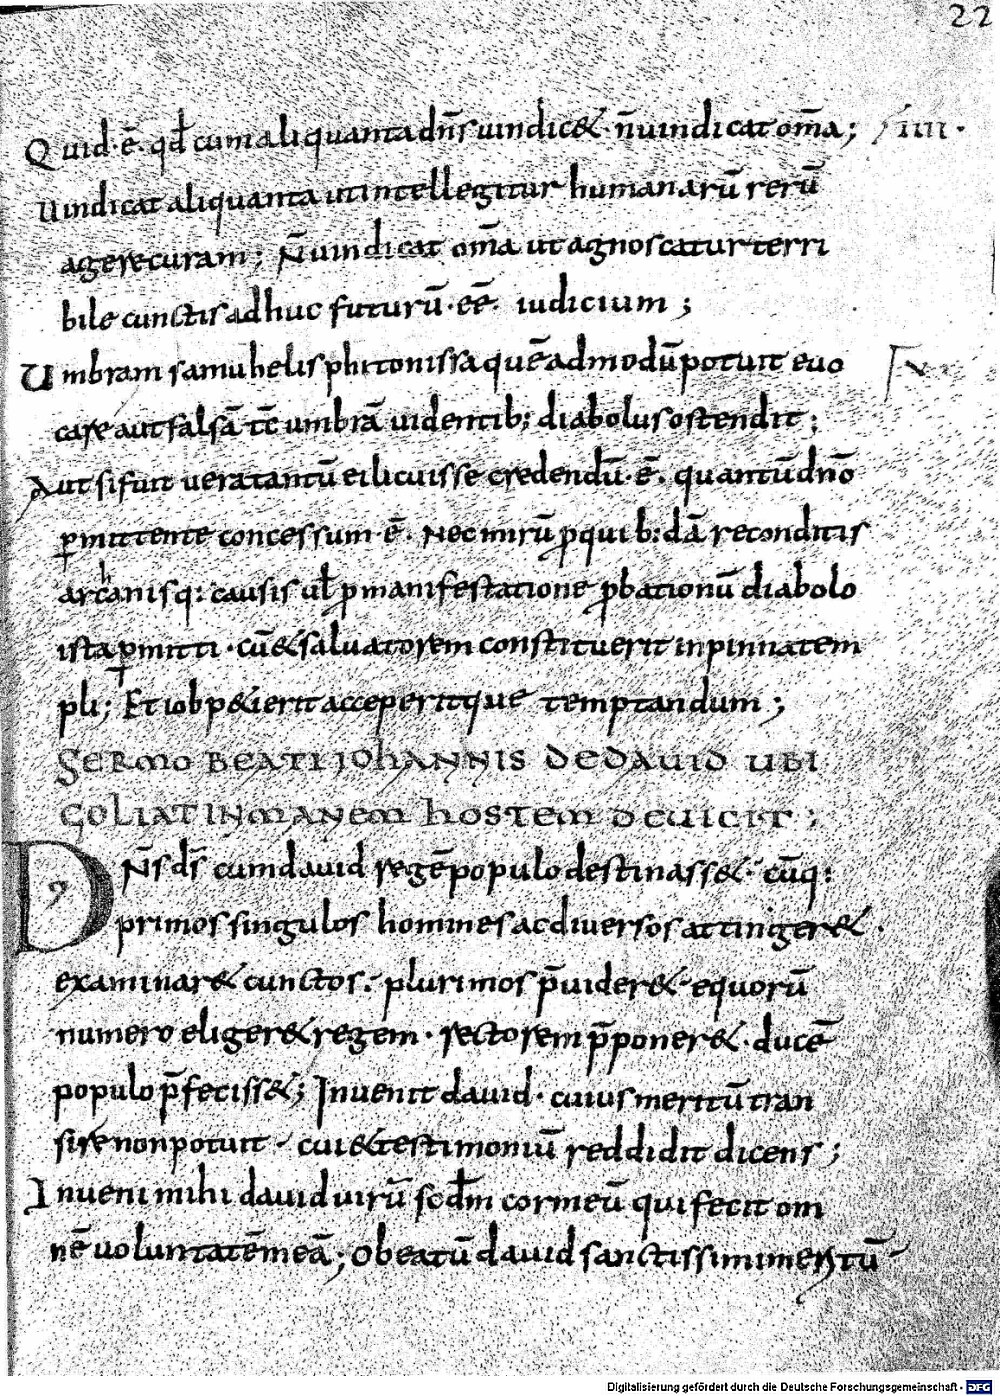 22
Quid·ē· qđ cum aliquanta dn̄s uindic&· n̄ uindicat om̄a; iiii·
Uindicat aliquanta ut intellegitur humanarū rerū
agere curam; N̄ uindicat om̄a ut agnoscatur terri
bile cunctis adhuc futurū·eē· iudicium;
Umbram samuhelis phitonissa quēadmodū potuit euo v·
care aut falsā tc̄ umbrā uidentib; diabolus ostendit;
Aut si fuit uera tantū ei licuisse credendū·ē· quantū dn̄o
ꝑmittente concessum·ē· Nec mirū ꝓ quib; dā reconditis
archanisq; causis ul̄ ꝓ manifestatione ꝓbationū diabolo
ista ꝑmitti· cū & saluatorem constituerit in pinna tem
pli; Et iob p&ierit acceperitque temptandum;
SERMO BEATI IOHANNIS DE DAUID UBI
GOLIAT INMANEM HOSTEM DEUICIT;
Dn̄s dς̄ cum dauid regē populo destinass&· cūq;
primos singulos homines ac diuersos attinger&·
examinar& cunctos· plurimos p̄uider& equorū
numero eliger& regem· rectorem p̄poner&· ducē
populo p̄feciss&; Inuenit dauid· cuius meritū tran
sire non potuit cui & testimoniū reddidit dicens;
Inueni mihi dauid uirū scdm̄ cor meū qui fecit om
nē uoluntatē meā; O beatū dauid sanctissimi meritū
Digitalisierung gefördert durch die Deutsche Forschungsgemeinschaft - DFG